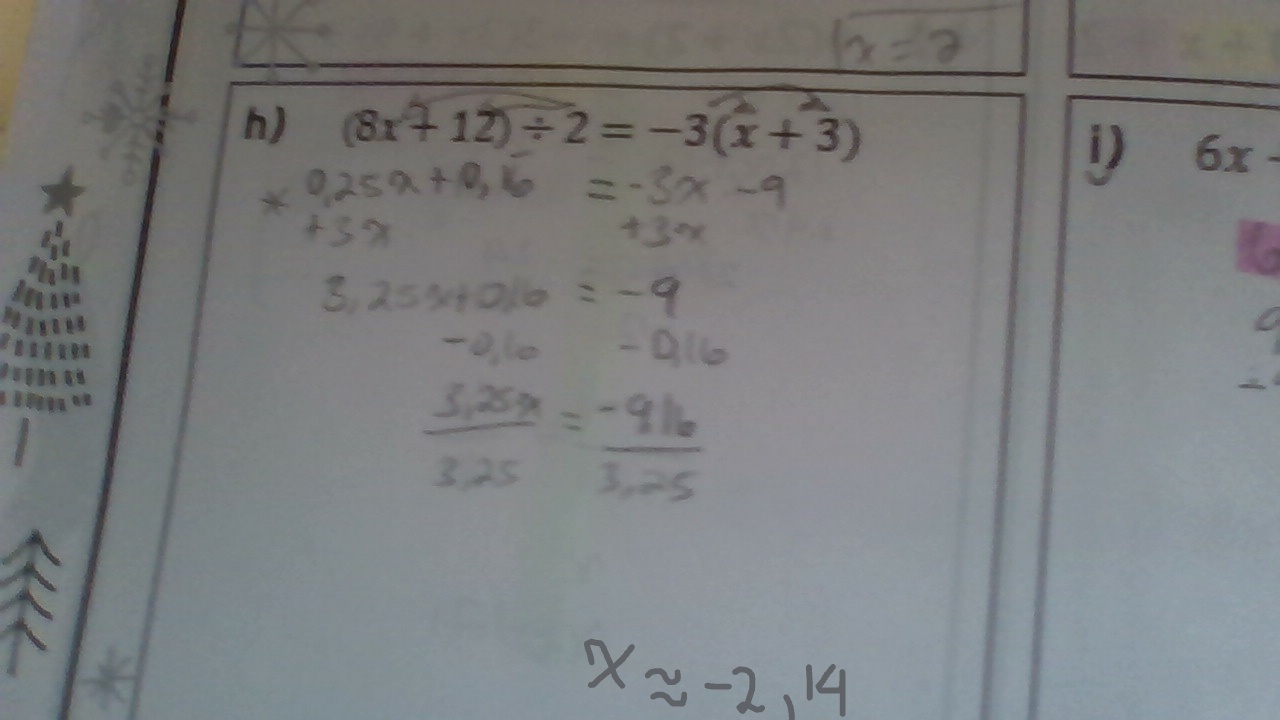 x = 2
h) (8x + 12) ÷ 2 = −3(x + 3)
i) 6x
* 0,25x + 0,16 = -3x - 9
+3x +3x
3,25x+0,16 = -9
-0,16 -0,16
3,25x = -9,16
3,25 3,25
x ≈ -2,14